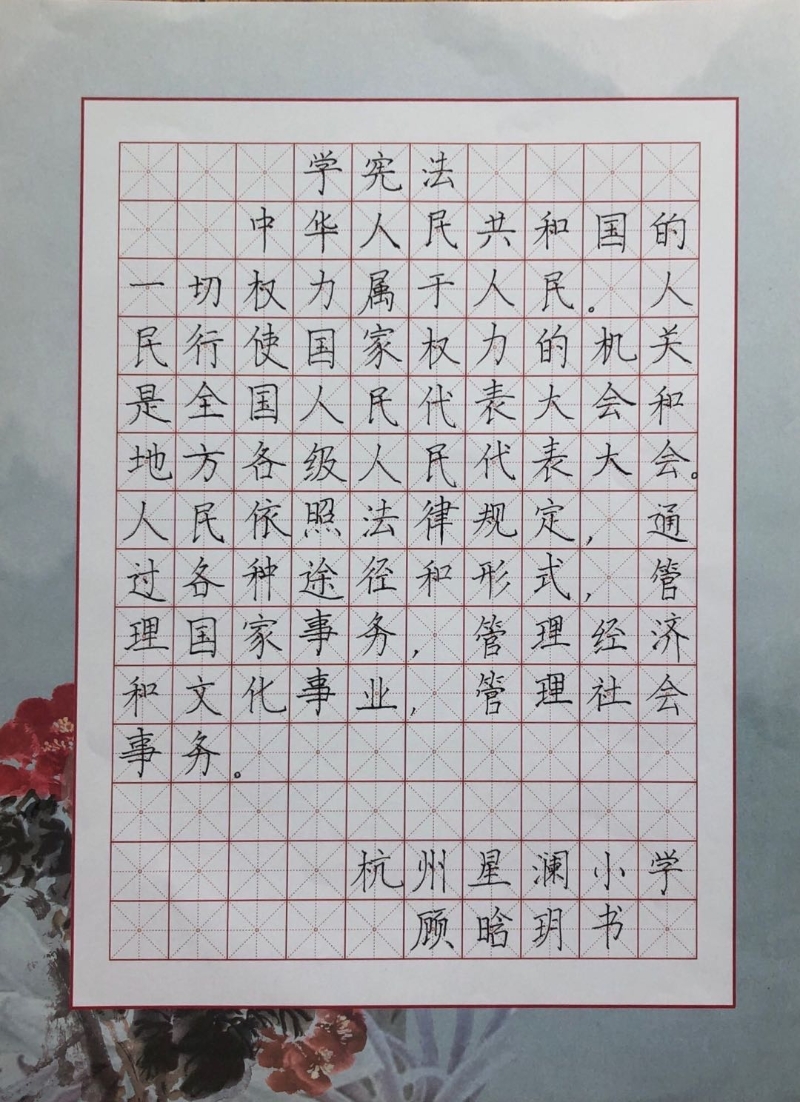 学宪法
中华人民共和国的
一切权力属于人民。人
民行使国家权力的机关
是全国人民代表大会和
地方各级人民代表大会。
人民依照法律规定，通
过各种途径和形式，管
理国家事务，管理经济
和文化事业，管理社会
事务。
杭州星澜小学
顾晗玥书